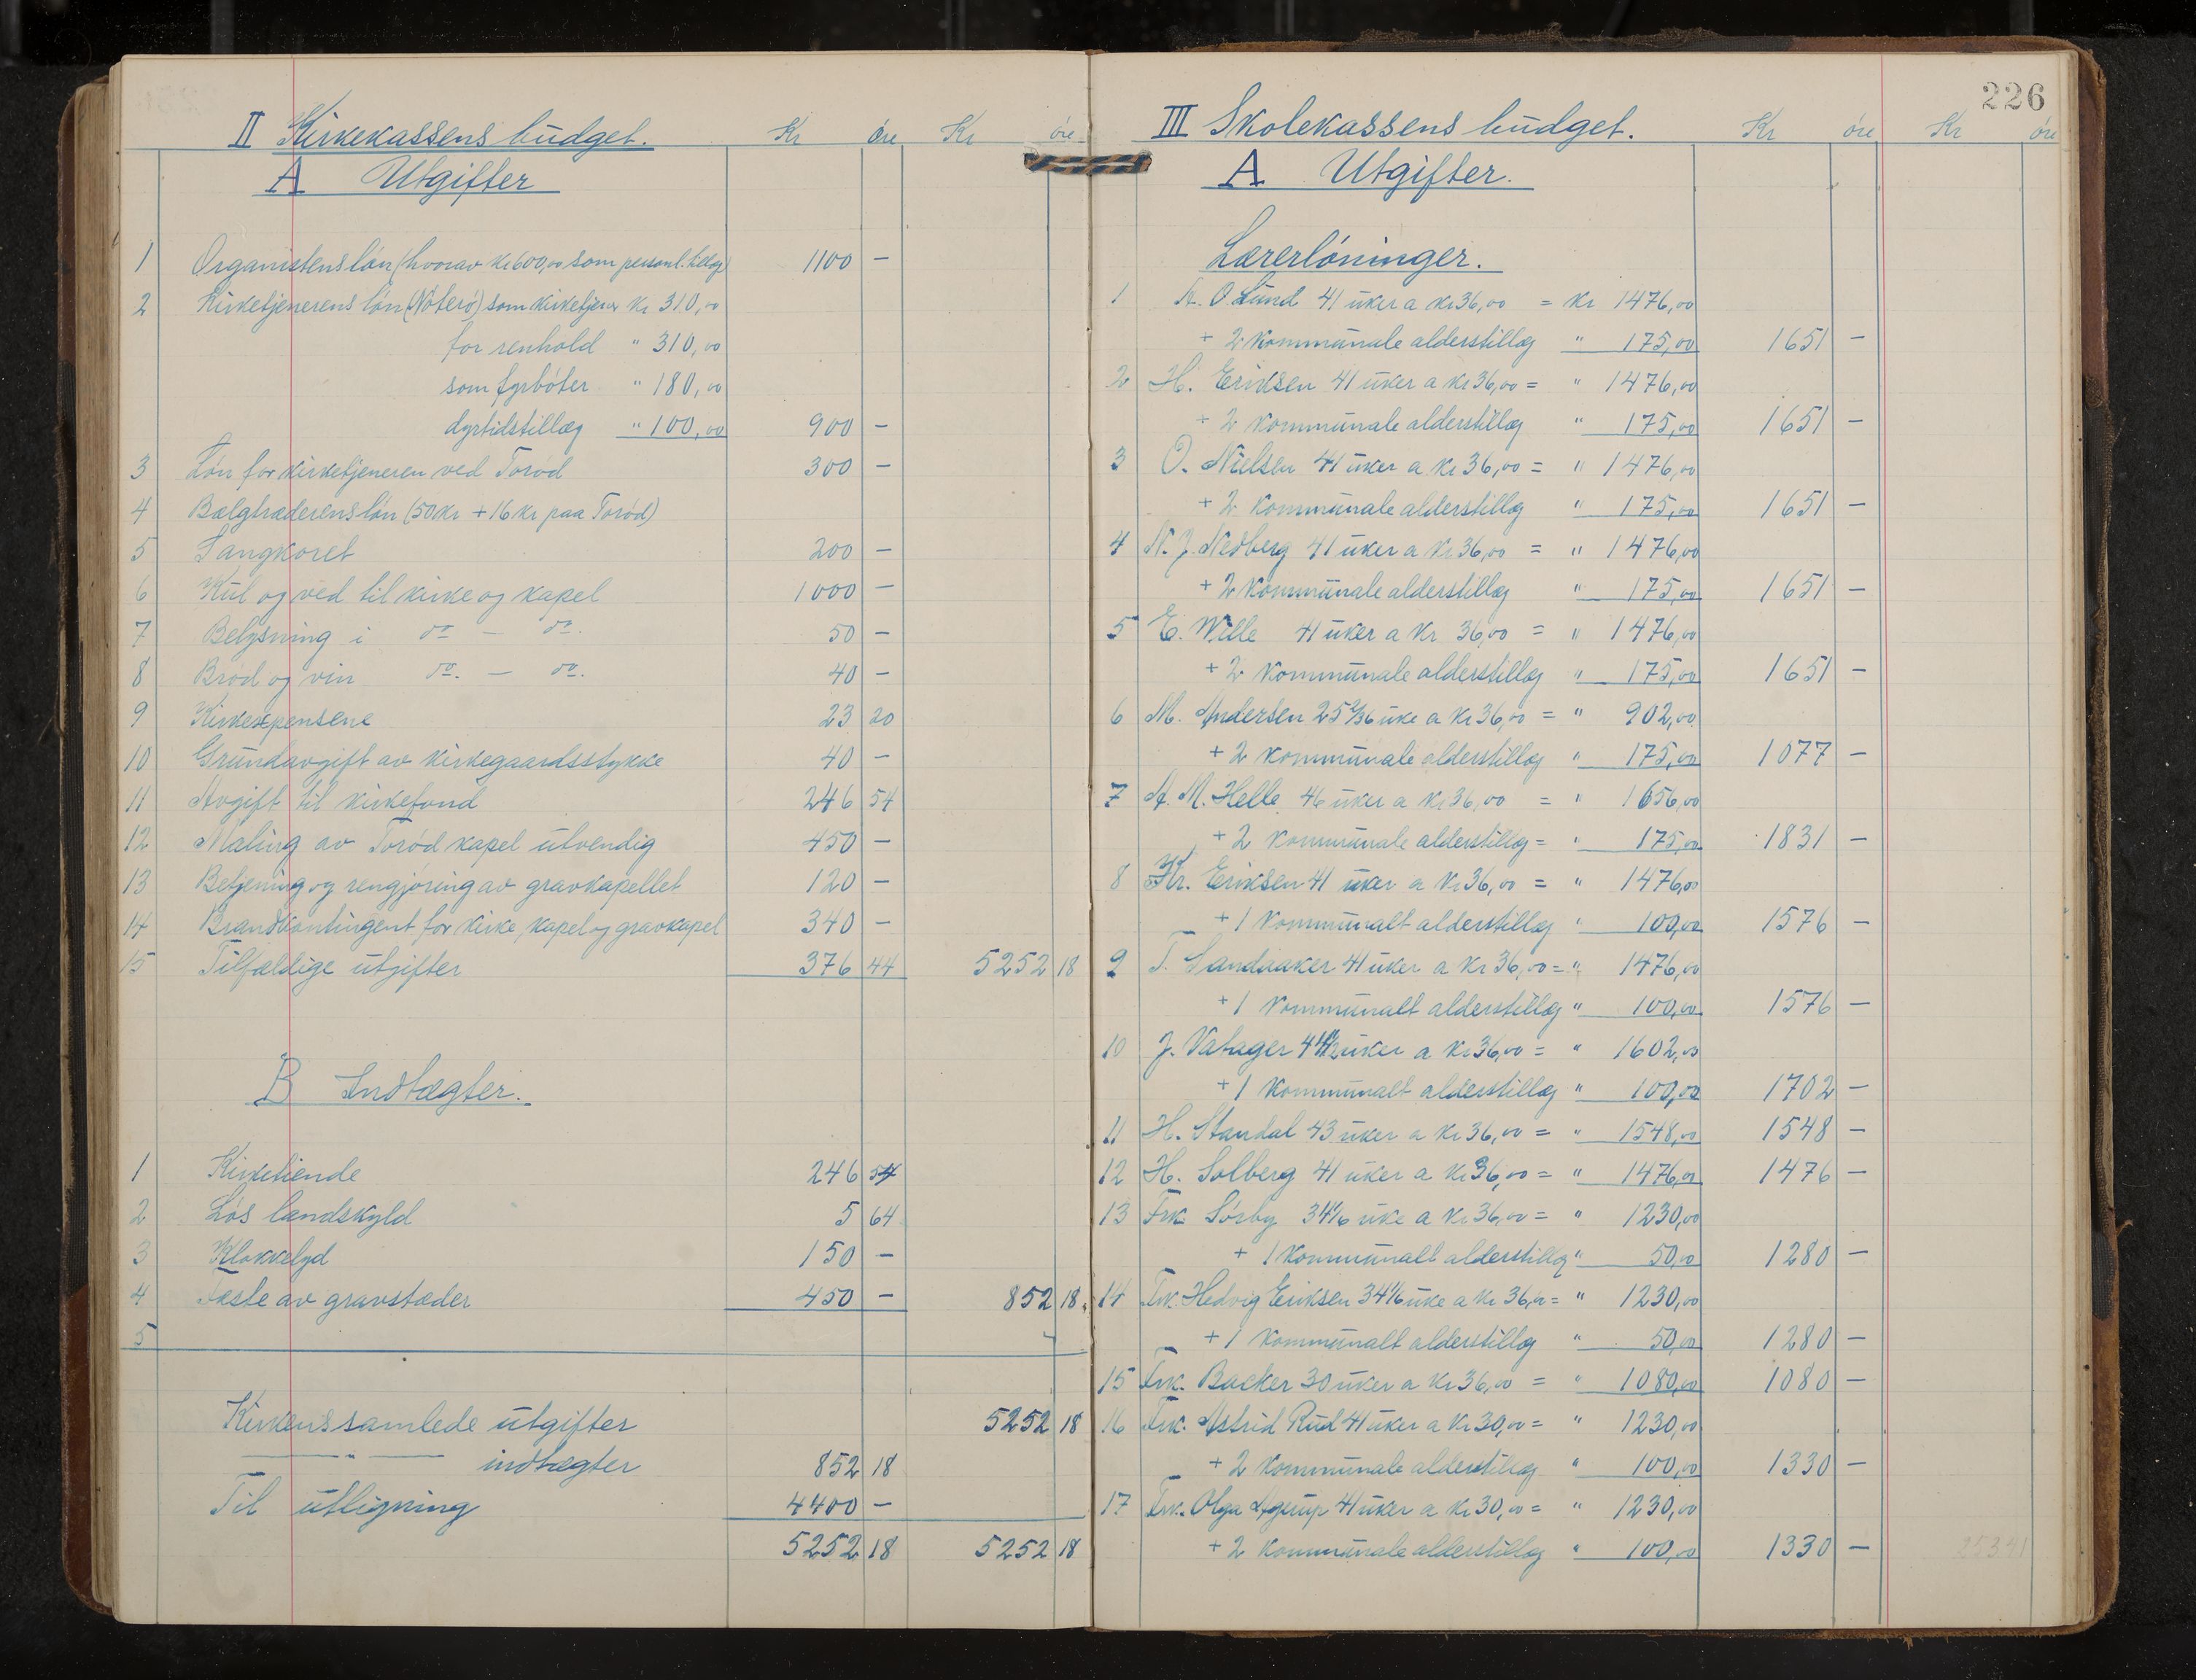 II Kirkekassens budget. Kr øre Kr øre
A Utgifter
1 Organistens løn (hvorav kr 600,00 som personl. tillæg) 1100 –
2 Kirketjenerens løn (Nøterø) som kirketjener kr 310,00
for renhold " 310,00
som fyrbøter " 180,00
dyrtidstillæg " 100,00 900 –
3 Løn for kirketjeneren ved Torød 300 –
4 Bælgtræderens løn (50 kr + 16 kr paa Torød)
5 Sangkoret 200 –
6 Kul og ved til kirke og kapel 1000 –
7 Belysning i do – do. 50 –
8 Brød og vin do. – do. 40 –
9 Kirkeexpensene 23 20
10 Grundavgift av kirkegaardsstykke 40 –
11 Avgift til kirkefond 246 54
12 Maling av Torød kapel utvendig 450 –
13 Betjening og rengjøring av gravkapellet 120 –
14 Brandkontingent for kirke, kapel og gravkapel 340 –
15 Tilfældige utgifter 376 44 5252 18
B Indtægter.
1 Kirketiende 246 54
2 Løs landskyld 5 64
3 Klokkelyd 150 –
4 Fæste av gravstæder 450 – 852 18
5
Kirkens samlede utgifter 5252 18
— " — indtægter 852 18
Til utligning 4400 –
5252 18 5252 18
226
III Skolekassens budget. Kr øre Kr øre
A Utgifter.
Lærerløninger.
1 O. Lund 41 uker a kr 36,00 = kr 1476,00
+ 2 kommunale alderstillæg " 175,00 1651 –
2 H. Eriksen 41 uker a kr 36,00 = " 1476,00
+ 2 kommunale alderstillæg " 175,00 1651 –
3 O. Nielsen 41 uker a kr 36,00 = " 1476,00
+ 2 kommunale alderstillæg " 175,00 1651 –
4 N. J. Nedberg 41 uker a kr 36,00 = " 1476,00
+ 2 kommunale alderstillæg " 175,00 1651 –
5 E. Wille 41 uker a kr 36,00 = " 1476,00
+ 2 kommunale alderstillæg " 175,00 1651 –
6 M. Andersen 25 2/36 uke a kr 36,00 = " 902,00
+ 2 kommunale alderstillæg " 175,00 1077 –
7 A. M. Helle 46 uker a kr 36,00 = " 1656,00
+ 2 kommunale alderstillæg = " 175,00 1831 –
8 Kr. Eriksen 41 uker a kr 36,00 = " 1476,00
+ 1 kommunalt alderstillæg " 100,00 1576 –
9 T. Sandaaker 41 uker a kr 36,00 = " 1476,00
+ 1 kommunalt alderstillæg " 100,00 1576 –
10 J. Vatager 44 1/2 uker a kr 36,00 = " 1602,00
+ 1 kommunalt alderstillæg " 100,00 1702 –
11 H. Standal 43 uker a kr 36,00 = " 1548,00 1548 –
12 H. Solberg 41 uker a kr 36,00 = " 1476,00 1476 –
13 Frk. Sørby 34 1/6 uke a kr 36,00 = " 1230,00
+ 1 kommunalt alderstillæg " 50,00 1280 –
14 Frk. Hedvig Eriksen 34 1/6 uke a kr 36,00 = " 1230,00
+ 1 kommunalt alderstillæg " 50,00 1280 –
15 Frk. Backer 30 uker a kr 36,00 = " 1080,00 1080 –
16 Frk. Astrid Rud 41 uker a kr 30,00 = " 1230,00
+ 2 kommunale alderstillæg " 100,00 1330 –
17 Frk. Olga 41 uker a kr 30,00 = " 1230,00
+ 2 kommunale alderstillæg " 100,00 1330 –